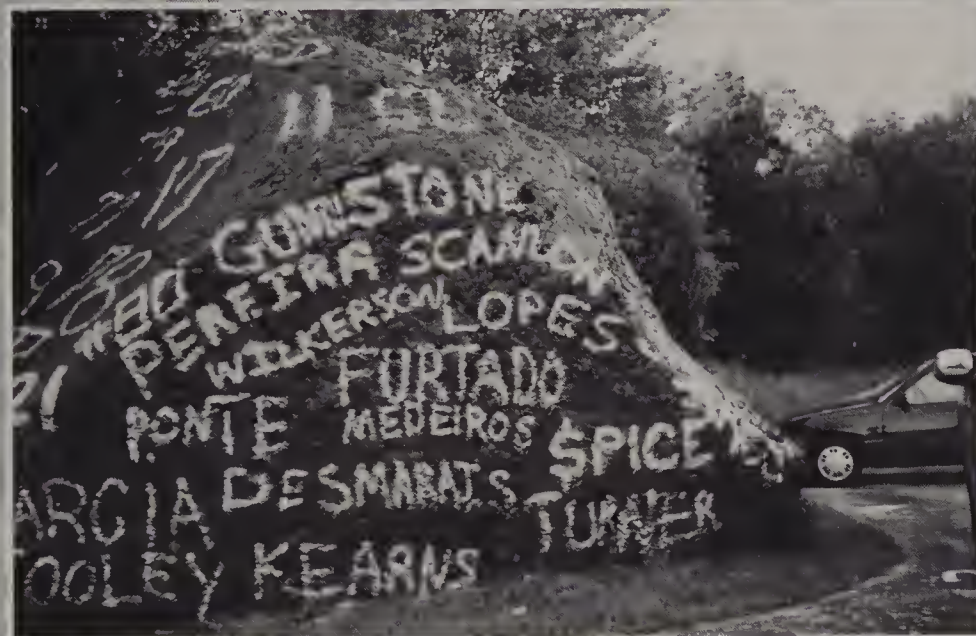 GUNSTONE
PEREIRA SCANLON
WILKERSON LOPES
FURTADO
PONTE MEDEIROS SPICE
DESMARAIS
ARCIA TURNER
OOLEY KEARNS